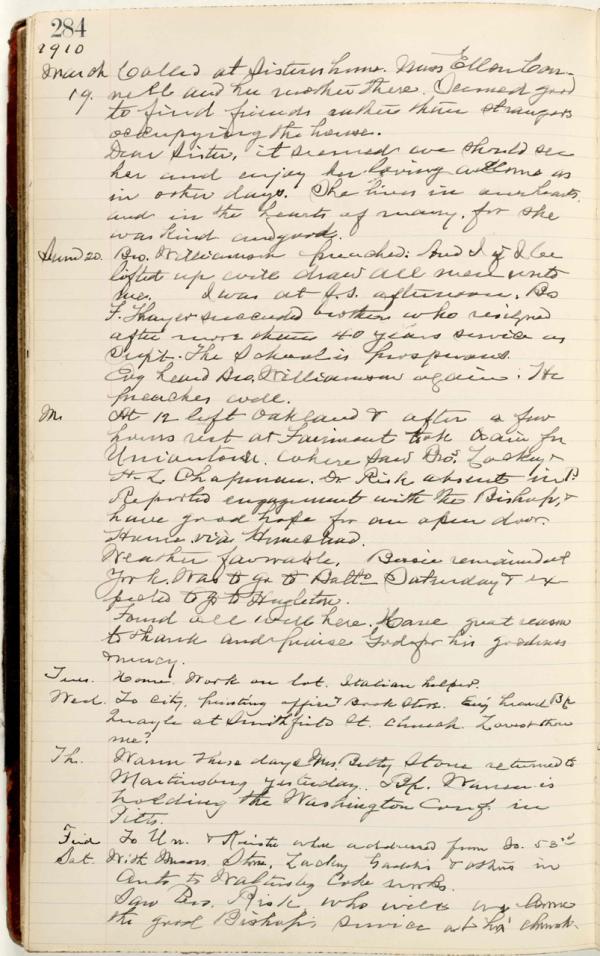 284
1910
March Called at Sisters home. Miss Ellen Con-
19. nell and her mother there. Seemed good
to find friends rather than strangers
occupying the house.
Dear Sister, it seemed we should see
her and enjoy her loving welcome as
in other days. She lives in our hearts
and in the hearts of many, for she
was kind and good.
Sund 20. Bro. Williamson preached: And I if I be
lifted up will draw all men unto
me. I was at S.S. afternoon. Bro
F. Thayer succeeded brother who resigned
after more than 40 years service as
Supt. The School is prosperous.
Evg heard Bro. Williamson again: He
preaches well.
M. At 12 left Oakland & after a few
hours rest at Fairmont took train for
Uniontown, where saw Bros. Lackey &
H. L. Chapman. Dr Risk absent in P.
Reported engagement with the Bishop, &
have good hope for an open door.
Home via Homestead.
Weather favorable. Bessie remained at
York. Was to go to Balto Saturday & ex-
pects to go to
Found all well here. Have great reason
to thank and praise God for his goodness
mercy.
Tues. Home. Work on lot. Italian helper.
Wed. To City, printing office & Book Store. Evg heard Bp
Quayle at Smithfield St. Church. Lovest thou
me?
Th. Warm these days Mrs. Betty Stone returned to
Martinsburg yesterday. Bp. Warren is
holding the Washington Conf. in
Pitts.
Frid To Un. & addressed from Is. 53rd
Sat. With Messrs. Stone, Lackey & others in
Auto to Coke works.
Saw Bro. Risk, who will
the good Bishop's service at his church.